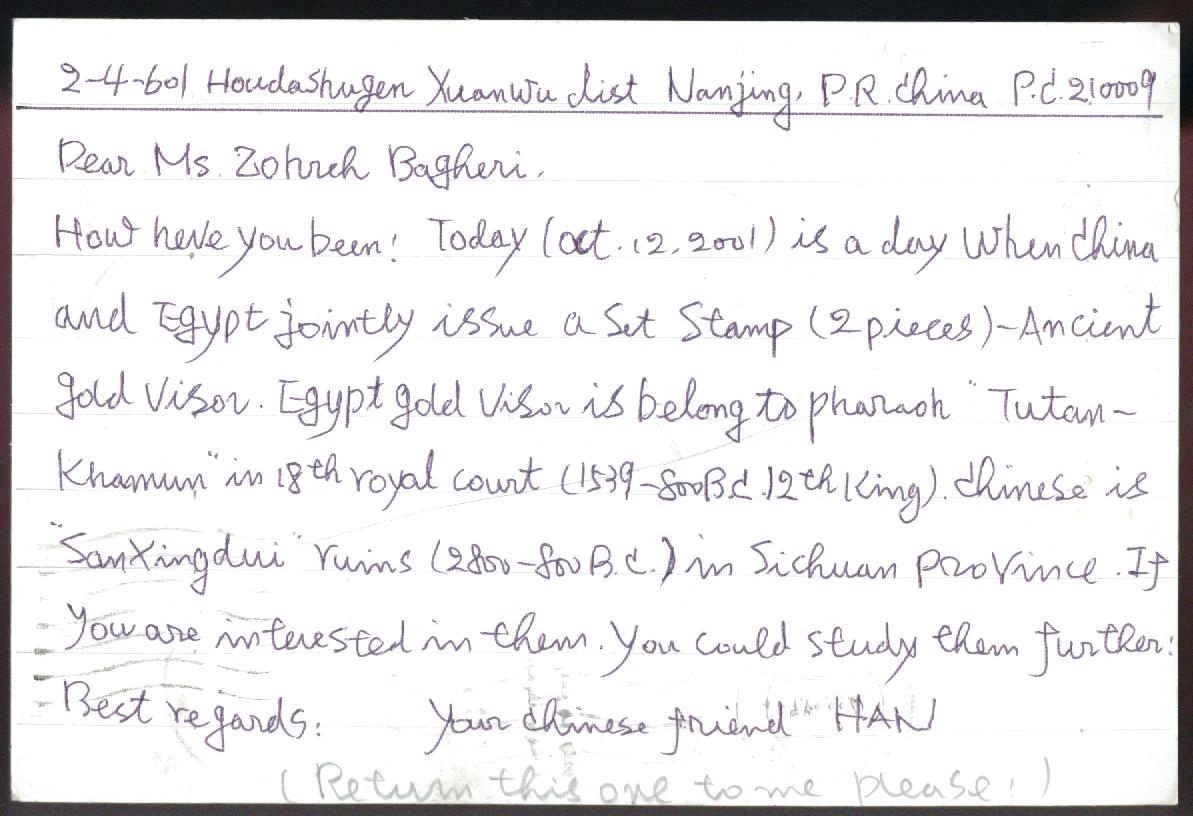 2-4-601 Houdashugen Xuanwu dist Nanjing, P.R. China P.C. 210009
Dear Ms. Zohreh Bagheri.
How heve you been! Today (oct. 12, 2001) is a day When China
and Egypt jointly issue a Set Stamp (2 pieces)-Ancient
gold Visor. Egypt gold Visor is belong to pharaoh "Tutan-
Khamun" in 18th royal court (1539-800B.C. 12th King). Chinese is
"SanXingdui" ruins (2800-800 B.C.) in Sichuan province. If
You are interested in them. You could study them further!
Best regards! Your Chinese friend HAN
(Return this one to me please!)